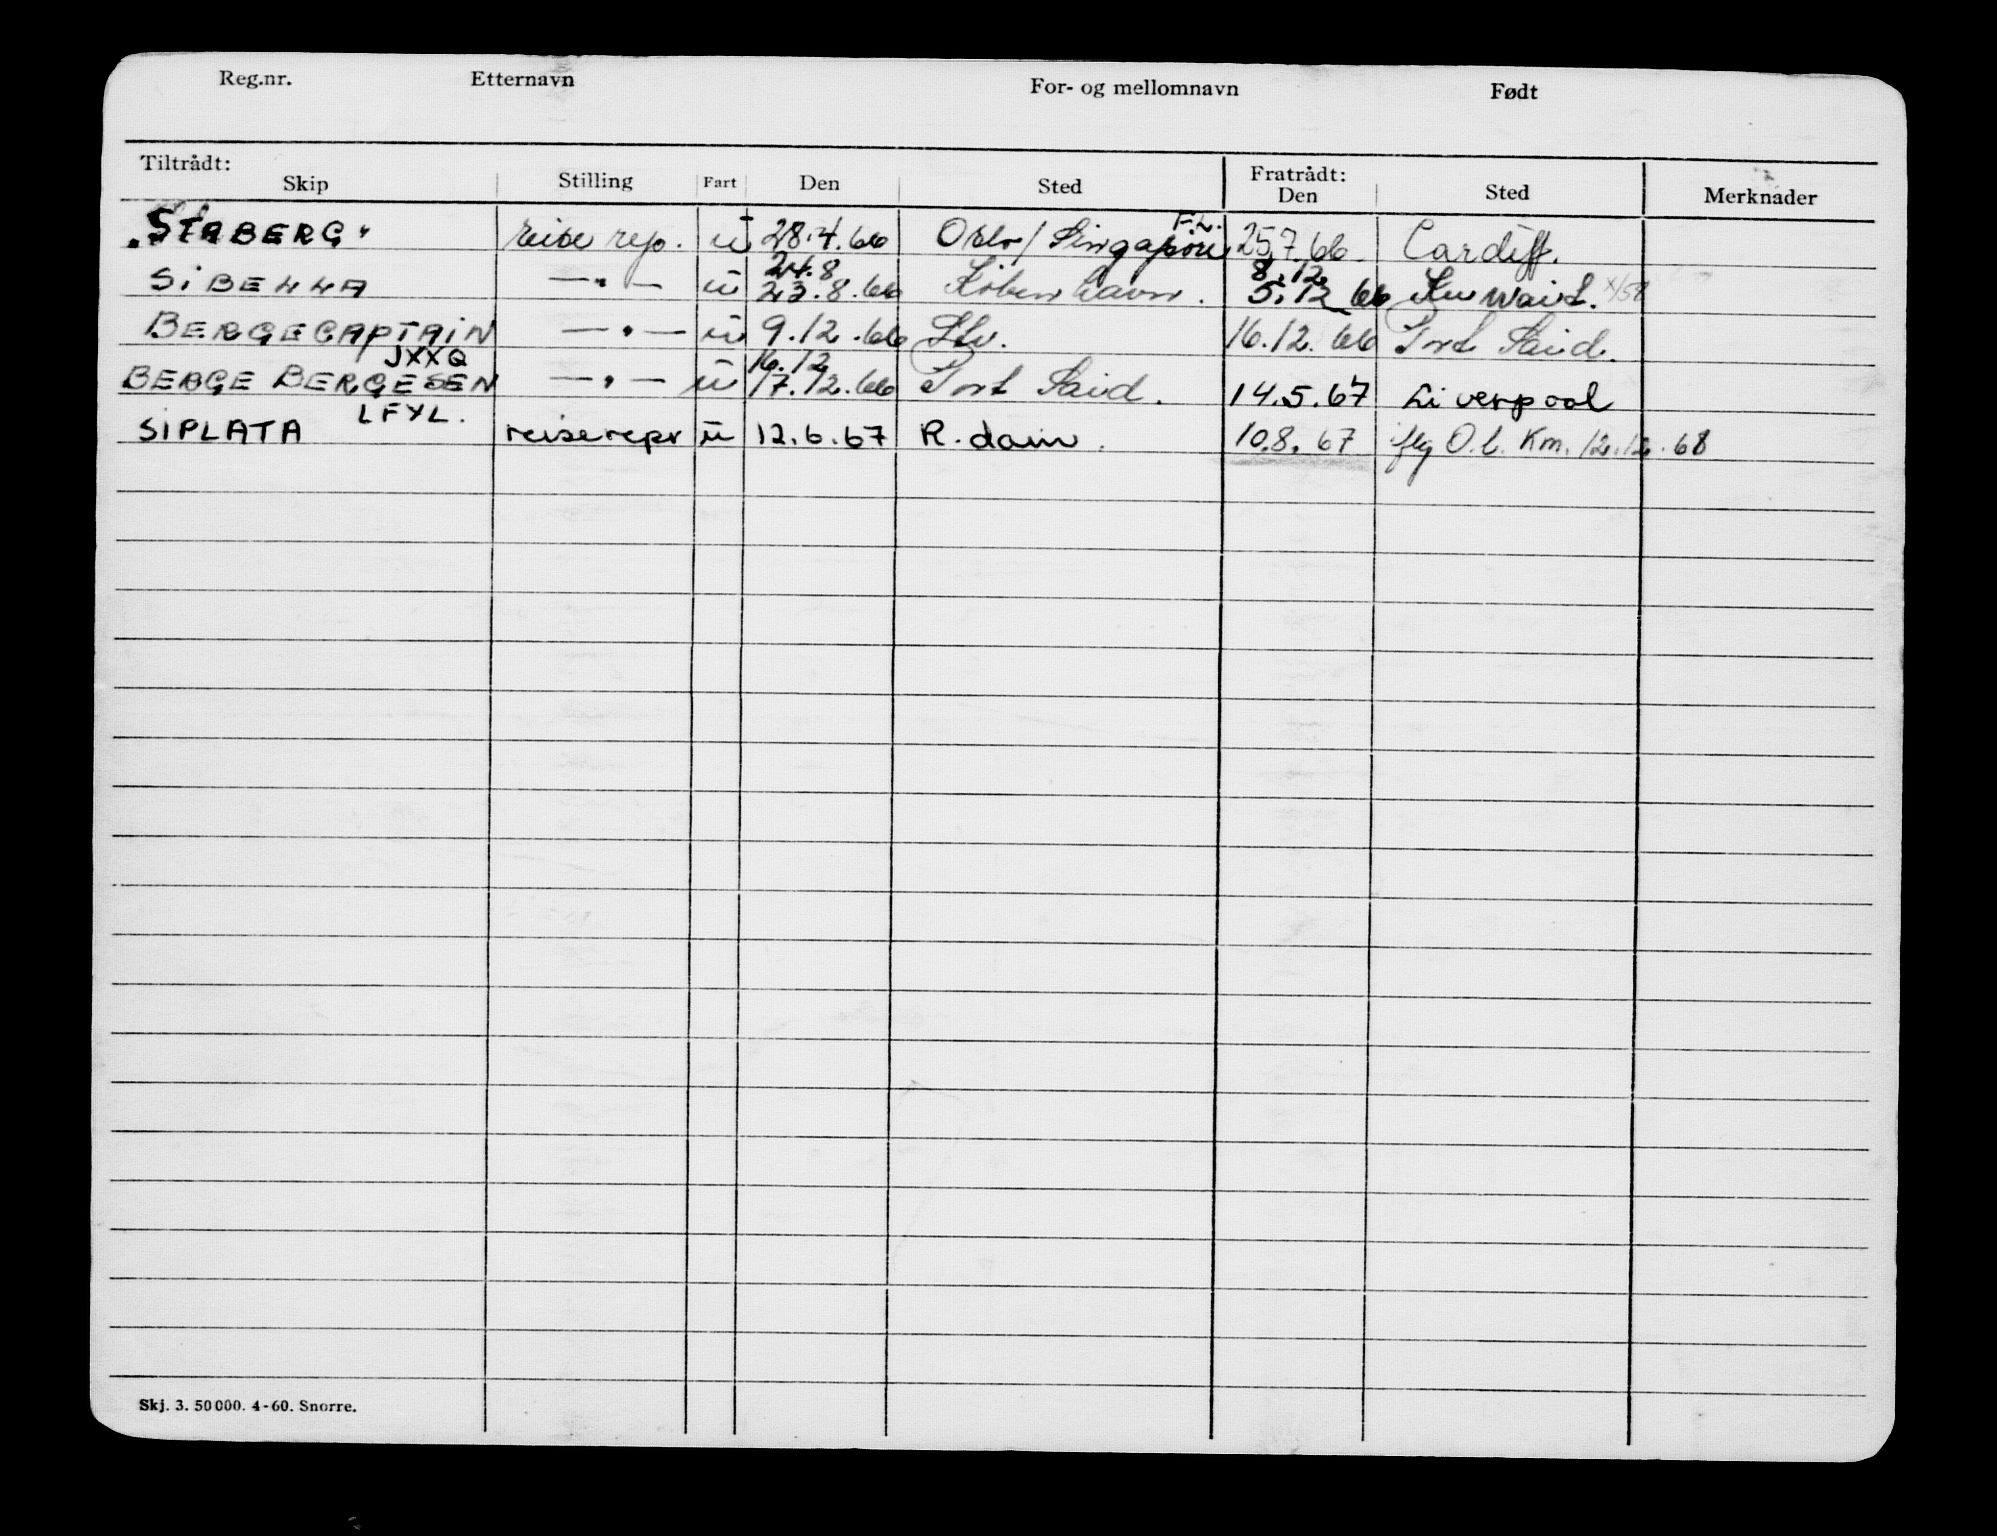 Reg.nr. Etternavn For- og mellomnavn Født
Tiltrådt: Fratrådt:
Skip Stilling Fart Den Sted Den Sted Merknader
"STABERG" reise rep. u 28.4.66 Oslo/Singapore F.L. 25.7.66 Cardiff.
24.8 8.12
SIBELLA —"— u 23.8.66 København. 5.12 66 Kuwait.
BERGECAPTAIN —"— u 9.12.66 Stv. 16.12.66 Port Said.
JXXQ 16.12
BERGE BERGESEN —"— u 17.12.66 Port Said. 14.5.67 Liverpool
LFYL.
SIPLATA reiserepr u 12.6.67 R.dam. 10.8.67 flg O.l. Km. 12.12.68
Skj. 3. 50000. 4-60. Snorre.